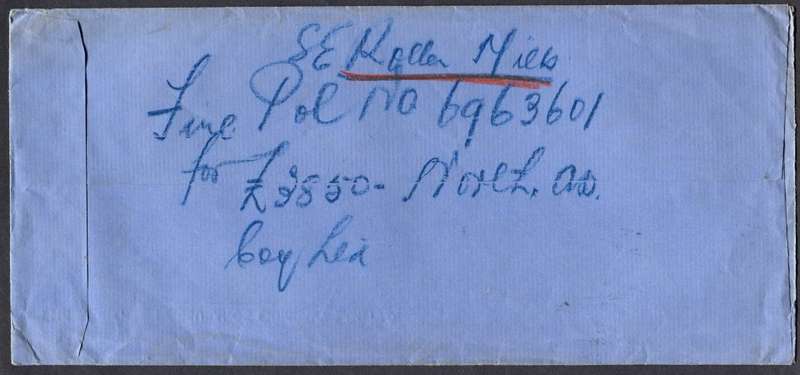 SE Roller Mills
Fire Pol No 6963601
for £3850- North. Ass.
Coy Ltd